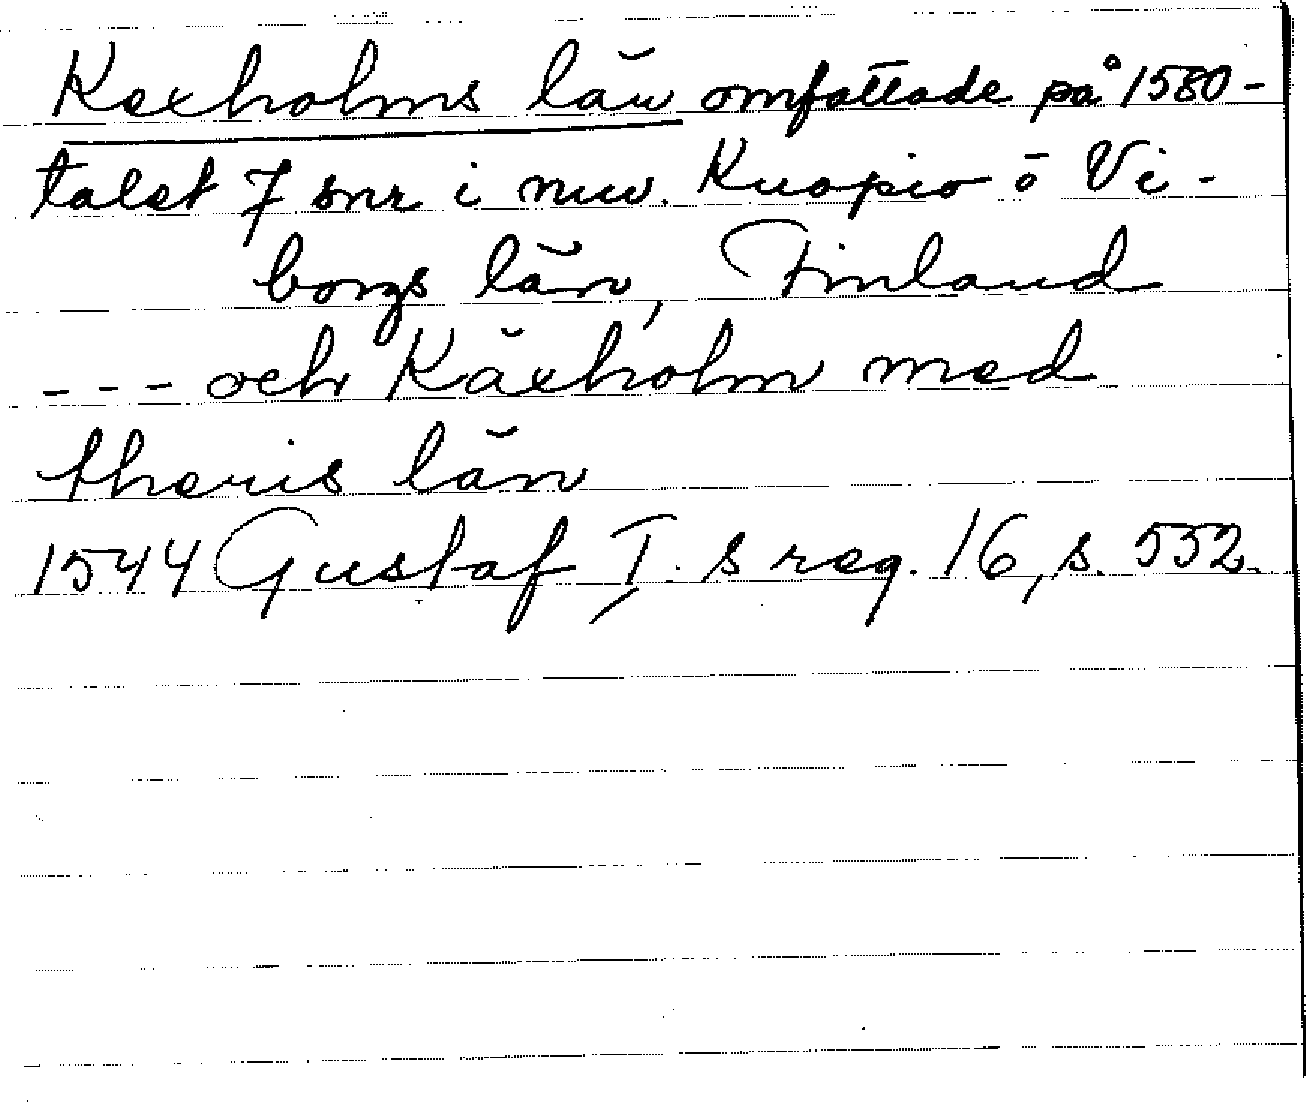 Kexholms län omfattade på 1580-
talet 7 snr i nuv. Kuopio o Vi-
borgs län, Finland
--- och Käxholm med
theris län
1544 Gustaf I:s reg. 16, s. 552.